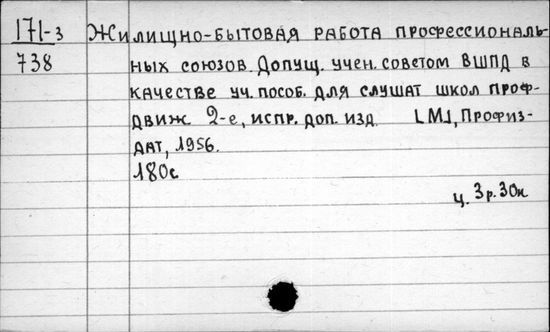 171-3 Жилищно-бытовая работа профессиональ-
738 ных союзов. Допущ. учен. советом ВШПД в
качестве уч. пособ. для слушат школ проф-
движ 2-е, испр. доп. изд. [М], Профиз-
дат, 1956.
180с
ц. 3р.30к